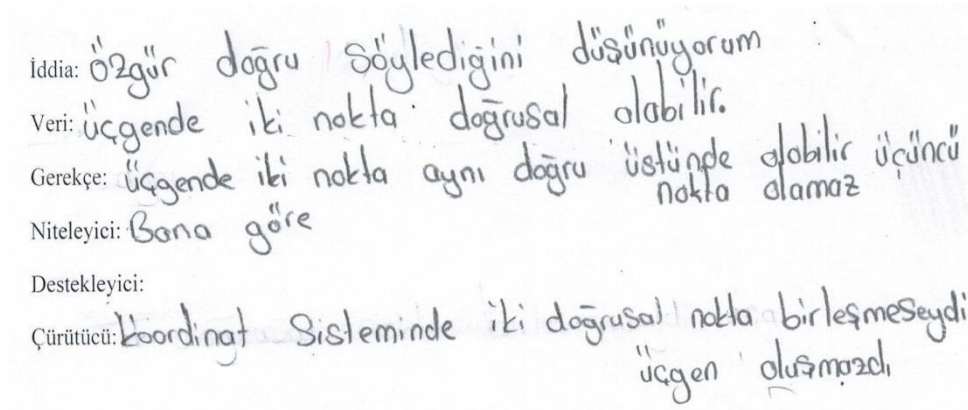 İddia: Özgür doğru söylediğini düşünüyorum
Veri: üçgende iki nokta doğrusal olabilir.
Gerekçe: üçgende iki nokta aynı doğru üstünde olabilir üçüncü
nokta olamaz
Niteleyici: Bana göre
Destekleyici:
Çürütücü: koordinat sisteminde iki doğrusal nokta birleşmeseydi
üçgen oluşmazdı